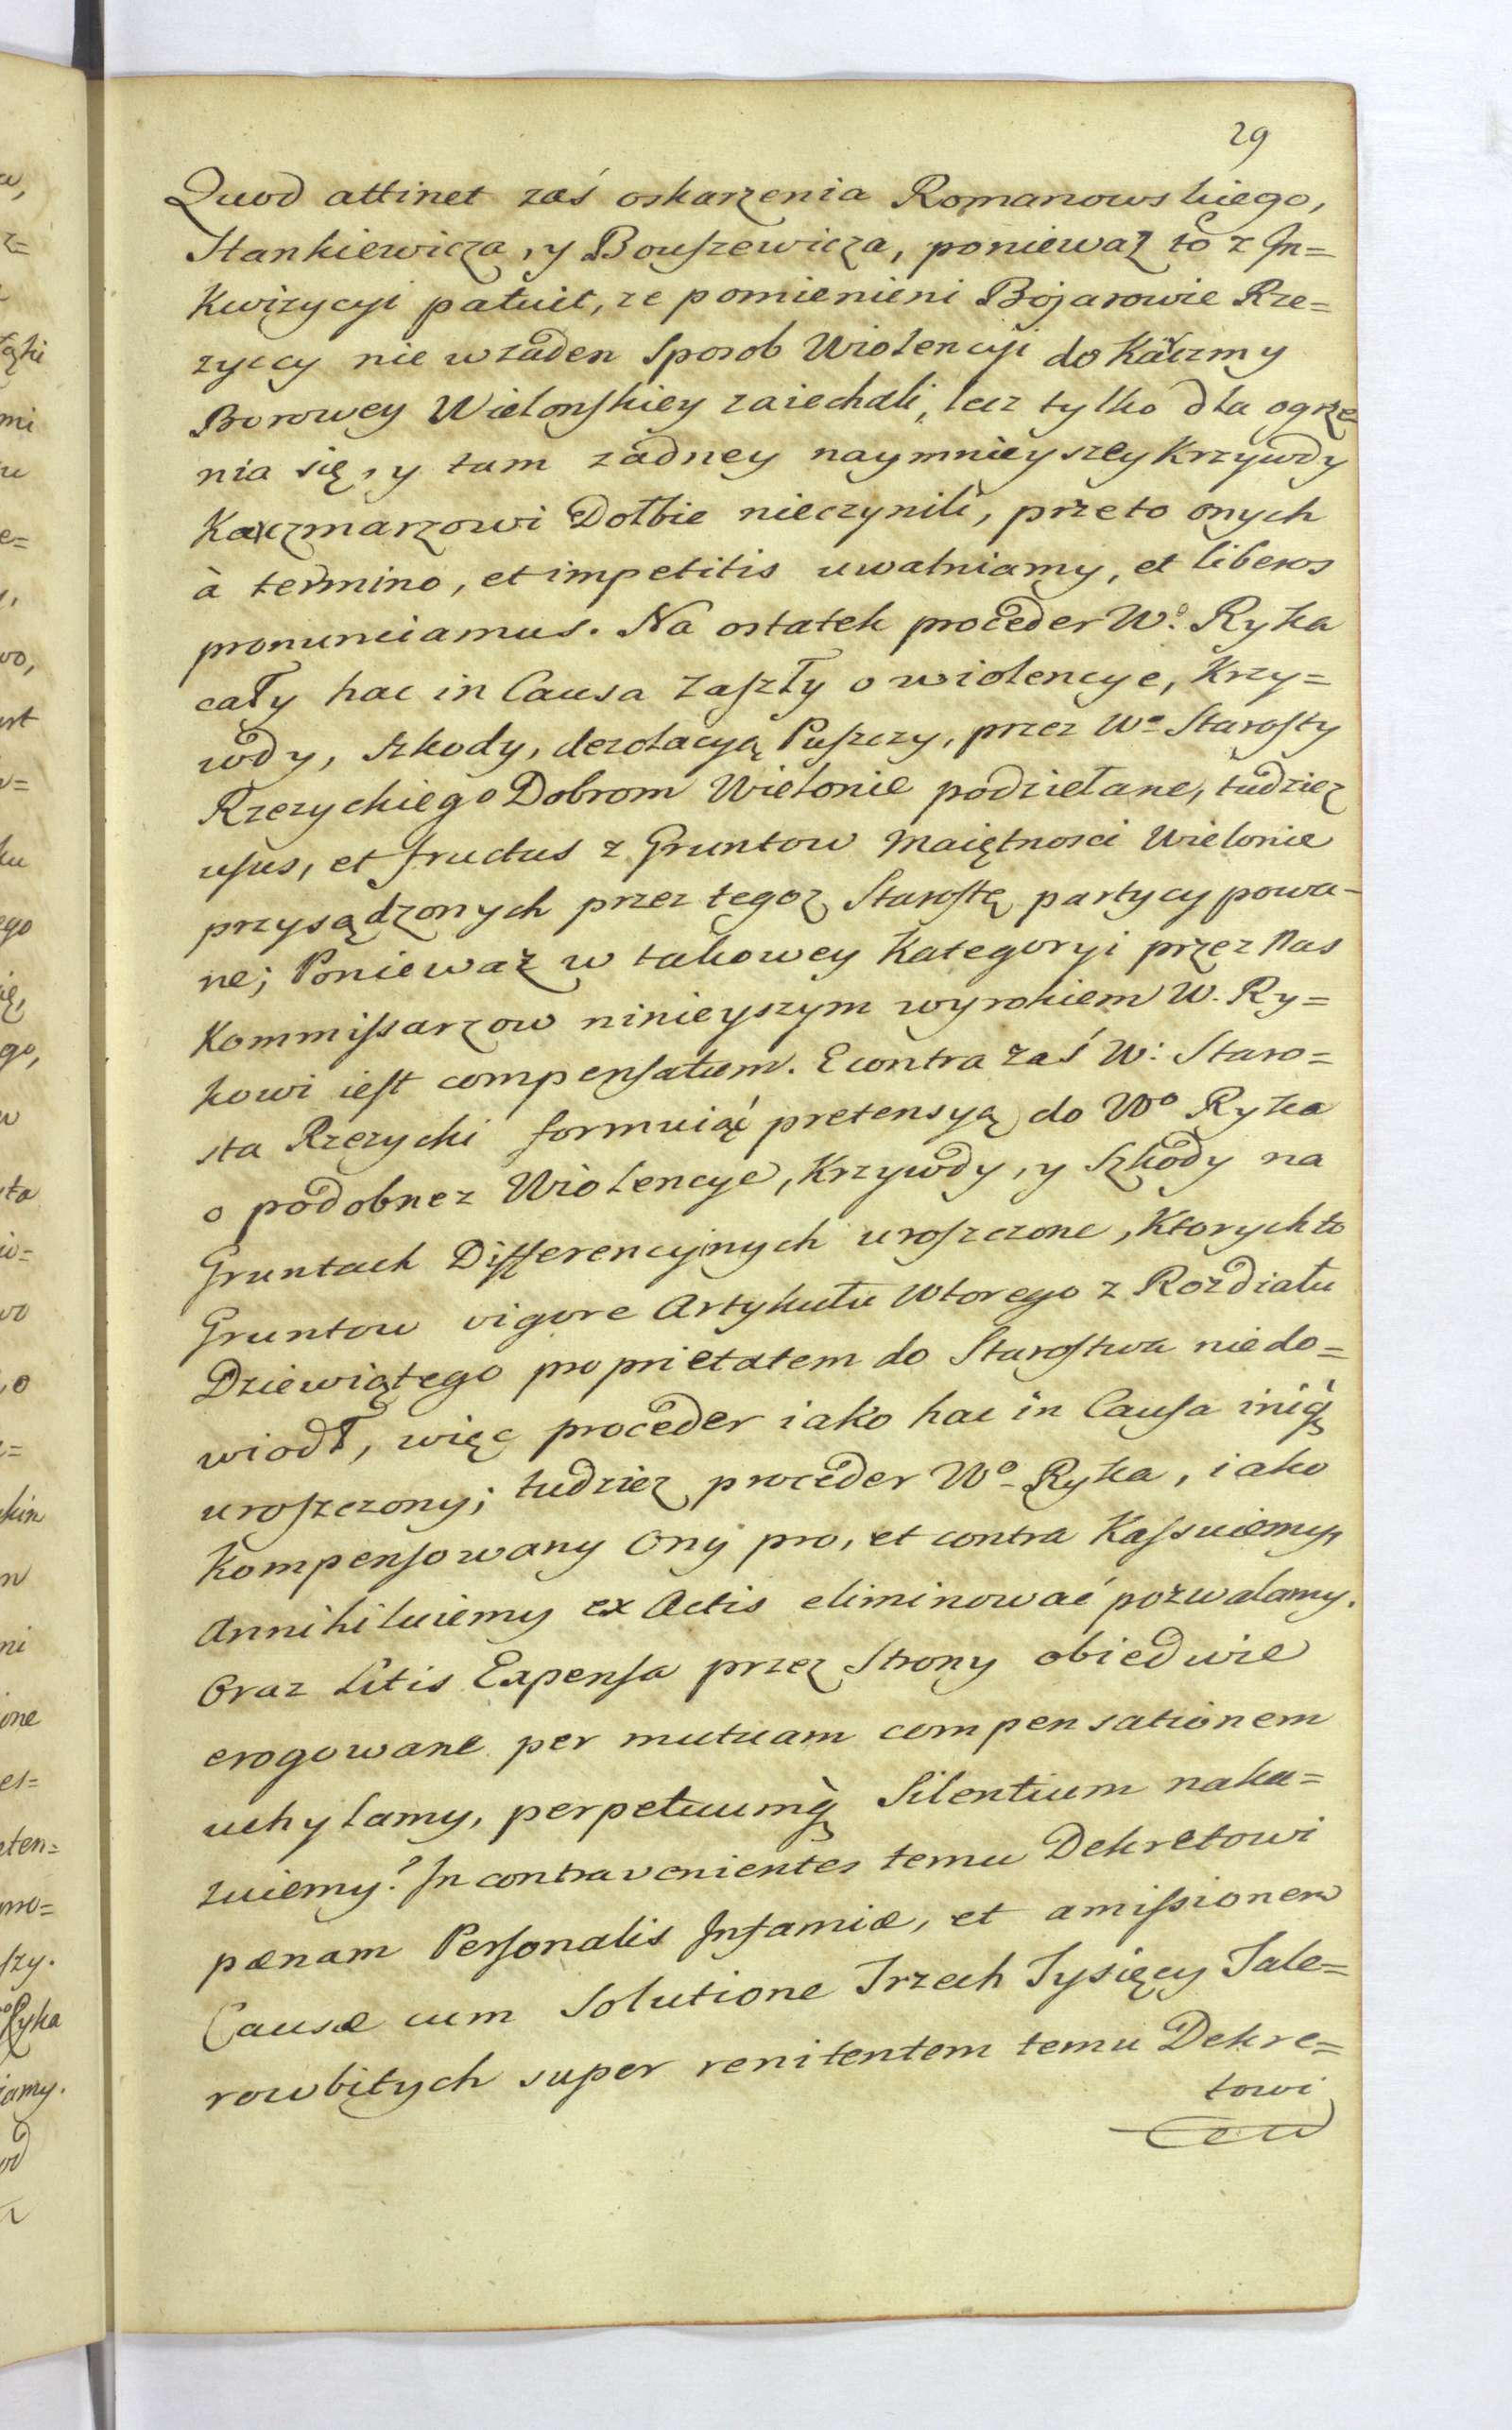 29
Quod attinet zaś oskarzenia Romanowskiego,
Stankiewicza, y Bouszewicza, ponieważ to z In=
kwizycyi patuit, ze pomienieni Bojarowie Rze=
zyccy nie wzaden sposob Wiolencyi do Kaczmy
Borowey Wielonskiey zaiechali, lecz tylko dla ogrze
nia się, y tam zadney naymnieyszey Krzywdy
Kaczmarzowi Dołbie nieczynili, przeto onych
à termino, et impetitis uwalniamy, et liberos
pronunciamus. Na ostatek proceder Wo. Ryka
cały hac in Causa Zaszły o wiolencye, Krzy=
wdy, szkody, dezolacyą Puszczy, przez Wo Starosty
Rzezyckiego Dobrom Wielonie podziełane, tudziez
usus, et fructus z Gruntow Maiętnosci Wielonie
przysądzonych przez tegoz Starostę partycypowa=
ne; Ponieważ w takowey Kategoryi przez Nas
Kommissarzow ninieyszym wyrokiem W. Ry=
kowi iest compensatum. Econtra zaś W: Staro=
sta Rzezycki formuiąć pretensyą do Wo Ryka
o podobnez Wiolencye, Krzywdy, y Szkody na
Gruntach Differencyinych uroszczone, Ktorych to
Gruntow vigore Artykułu Wtorego z Rozdiału
Dziewiątego proprietatem do Starostwa niedo=
wiodł, więc proceder iako hac in Causa iniq
uroszczony; tudziez proceder Wo Ryka, iako
kompensowany Ony pro, et contra Kassuiemy,
Annihiluiemy ex Actis eliminować pozwalamy.
Oraz Litis Expensa przez Strony obiedwie
erogowane per mutuam compensationem
uchylamy, perpetuumq Silentium naka=
zuiemy? In contravenientes temu Dekretowi
pænam Personalis Infamiæ, et amissionem
Causæ cum Solutione Trzech Tysięcy Tale=
rowbitych super renitentem temu Dekre=
towi